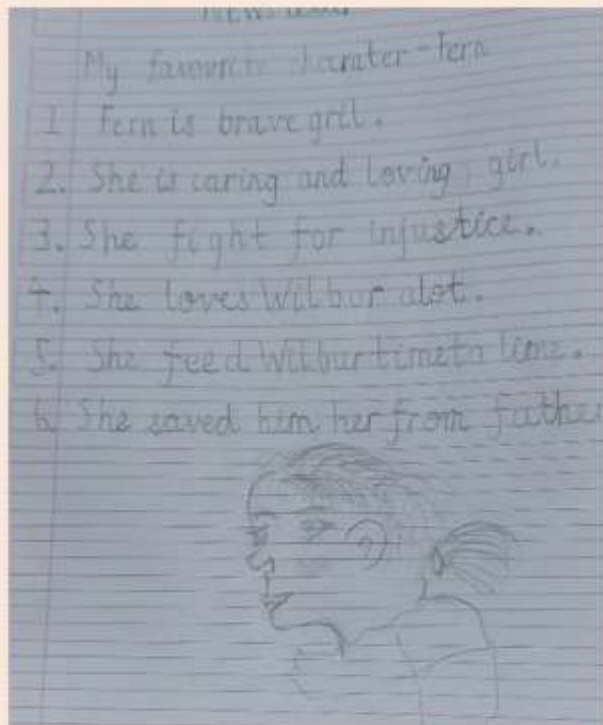 My favourite charater - Fern
1 Fern is brave gril.
2. She is caring and loving girl.
3. She fight for injustice.
4. She loves Wilbur alot.
5. She feed Wilbur time to time.
6. She saved him her from father